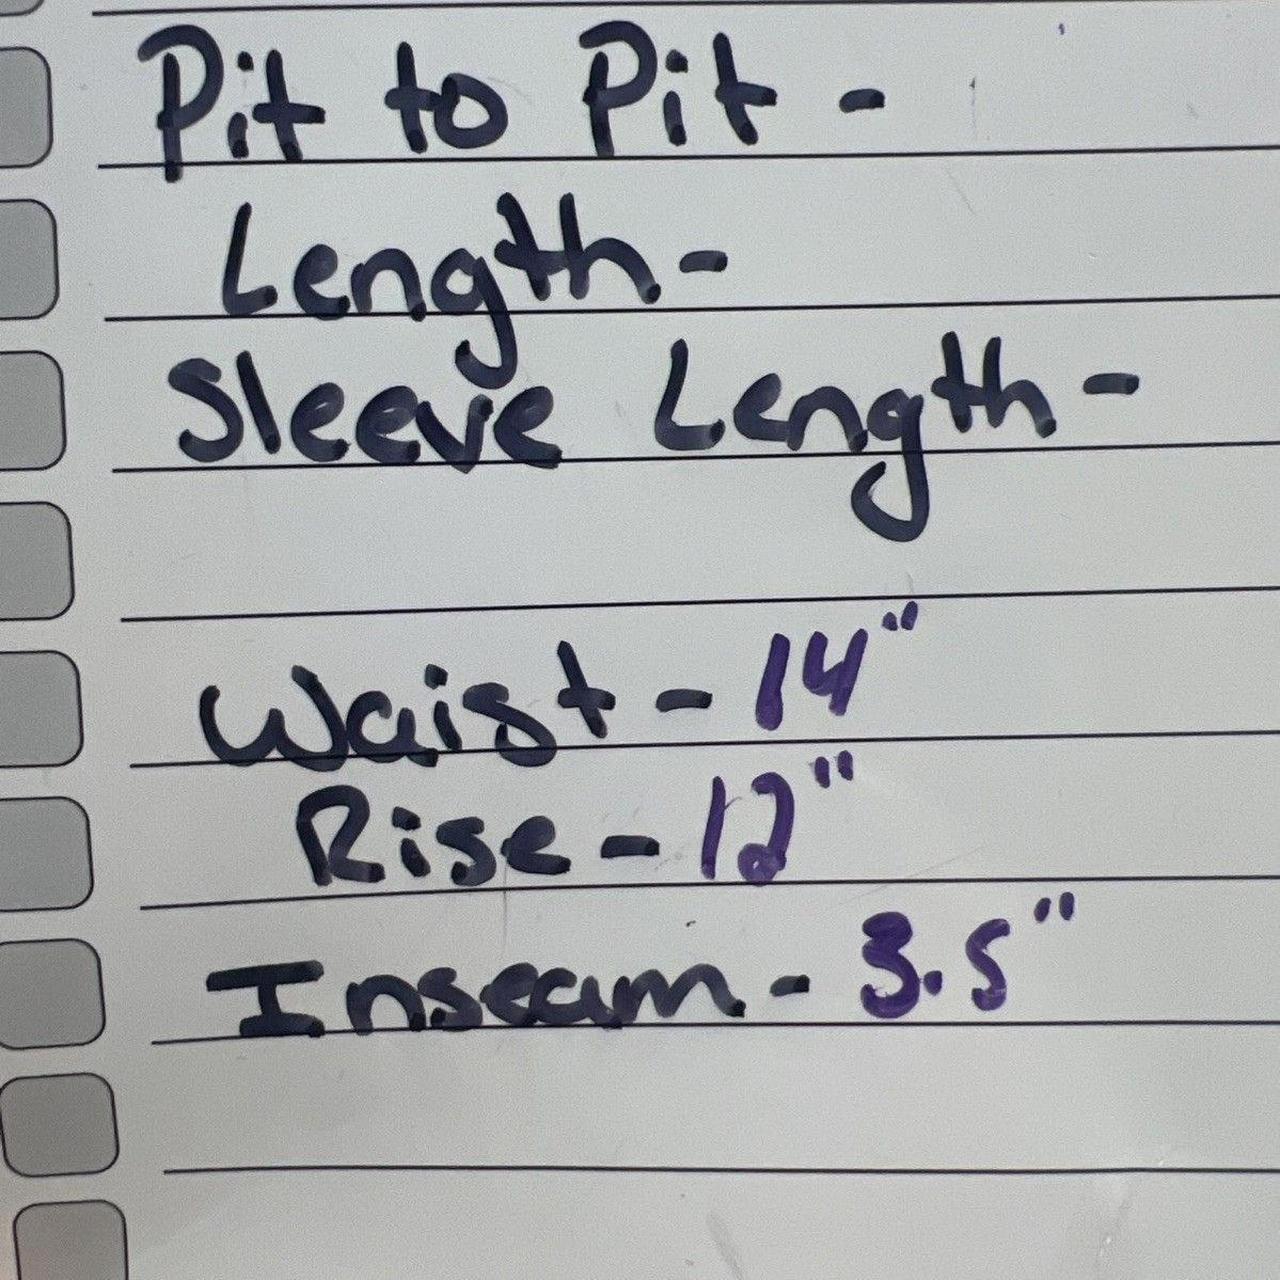 Pit to Pit -
Length -
Sleeve Length -
Waist - 14"
Rise - 12"
Inseam - 3.5"